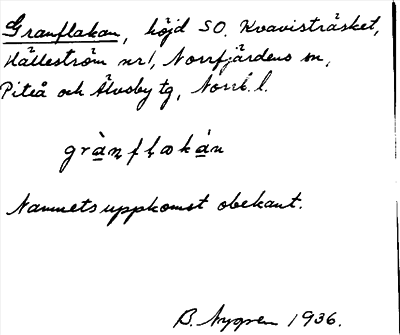 Granflakan, höjd SO. Kvavisträsket,
Hälleström nr 1, Norrfjärdens sn,
Piteå och Älvsby tg, Norrb. l.
grà̱n̥fl̥akà̱n
Namnets uppkomst obekant.
B. Nygren 1936.